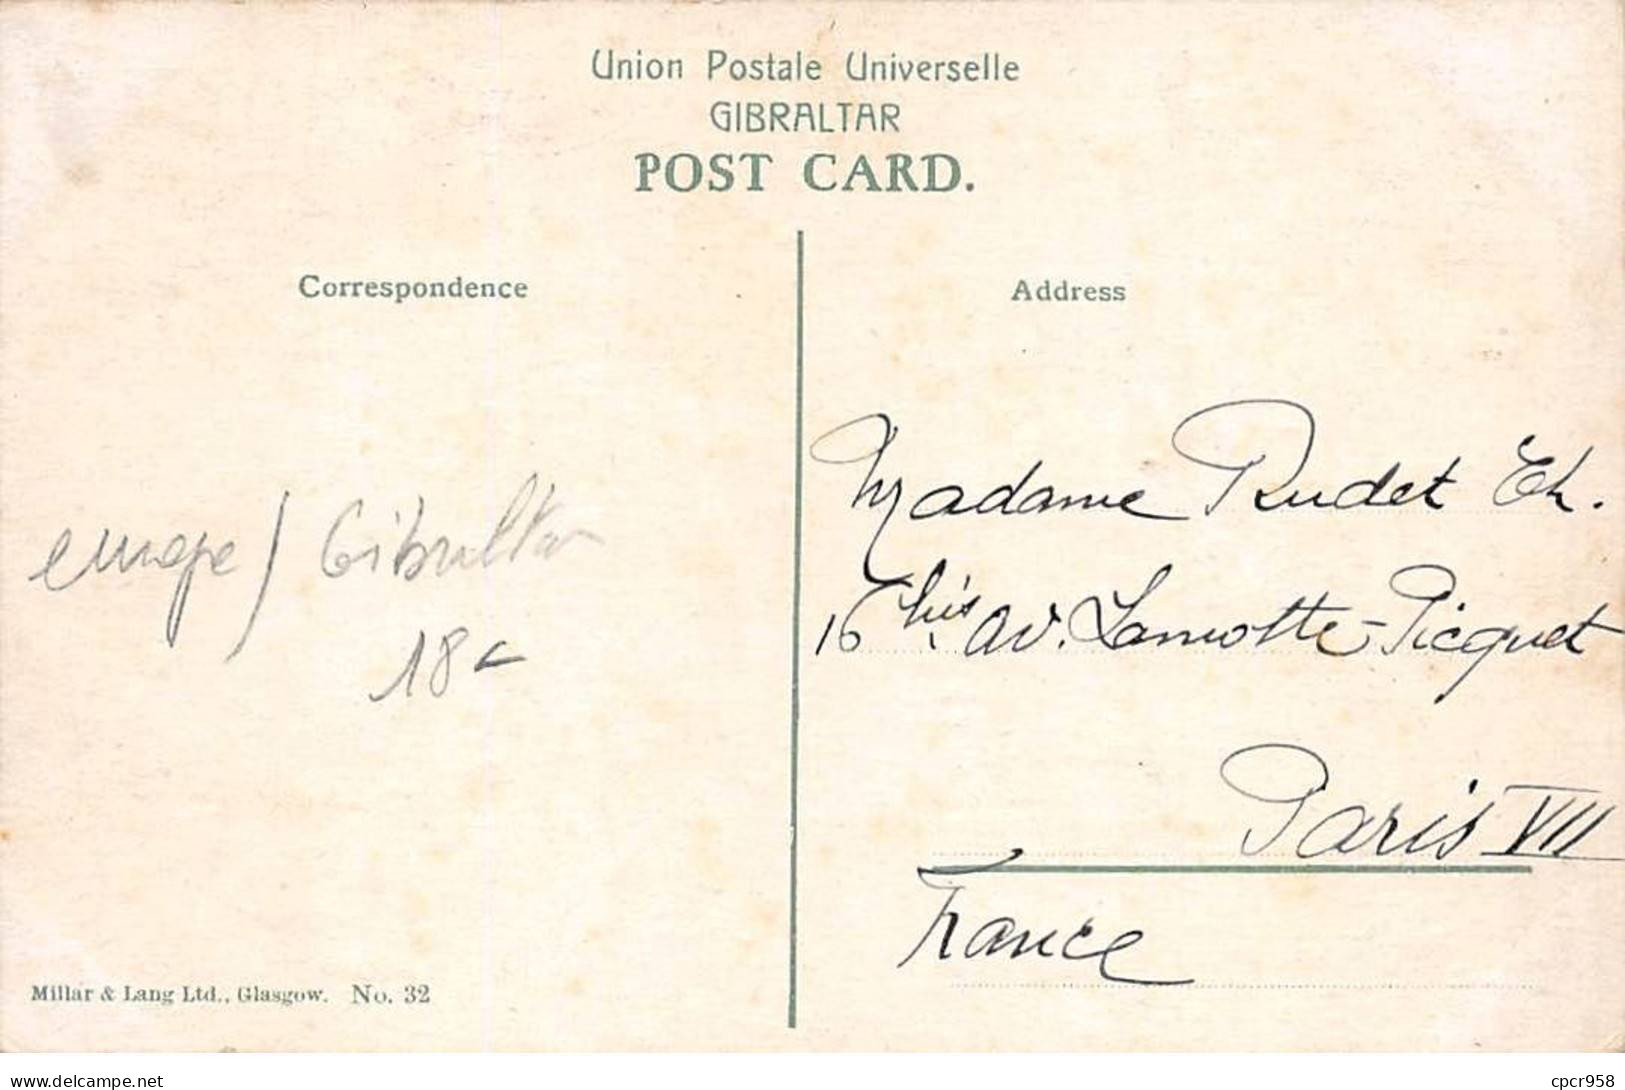 Union Postale Universelle
GIBRALTAR
POST CARD.
Correspondence
Address
Madame Rudet Ch.
16 bis Av. Lamotte-Picquet
Paris VII
France
europe / Gibraltar
18
Millar & Lang Ltd., Glasgow. No. 32
delcampe.net
cpcr958